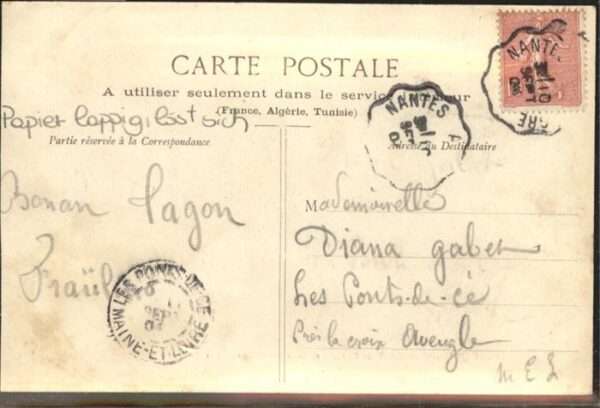 CARTE POSTALE
A utiliser seulement dans le service intérieur
(France, Algérie, Tunisie)
Papier lappig löst sich
Partie réservée à la Correspondance
Adresse du Destinataire
NANTES A
NANTES
Bonan Lagon
Mademoiselle
Diana Gabet
Les Ponts-de-cé
Près la croix Aveugle
M & L
LES PONTS-DE-CÉ
MAINE-ET-LOIRE